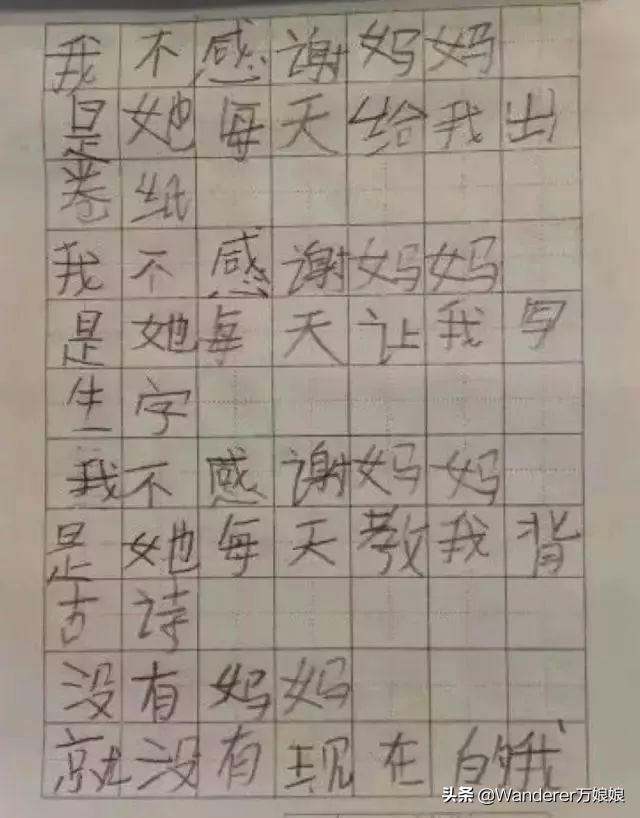 我不感谢妈妈
是她每天给我出
卷纸
我不感谢妈妈
是她每天让我写
生字
我不感谢妈妈
是她每天教我背
古诗
没有妈妈
就没有现在的我
头条 @Wanderer方娘娘